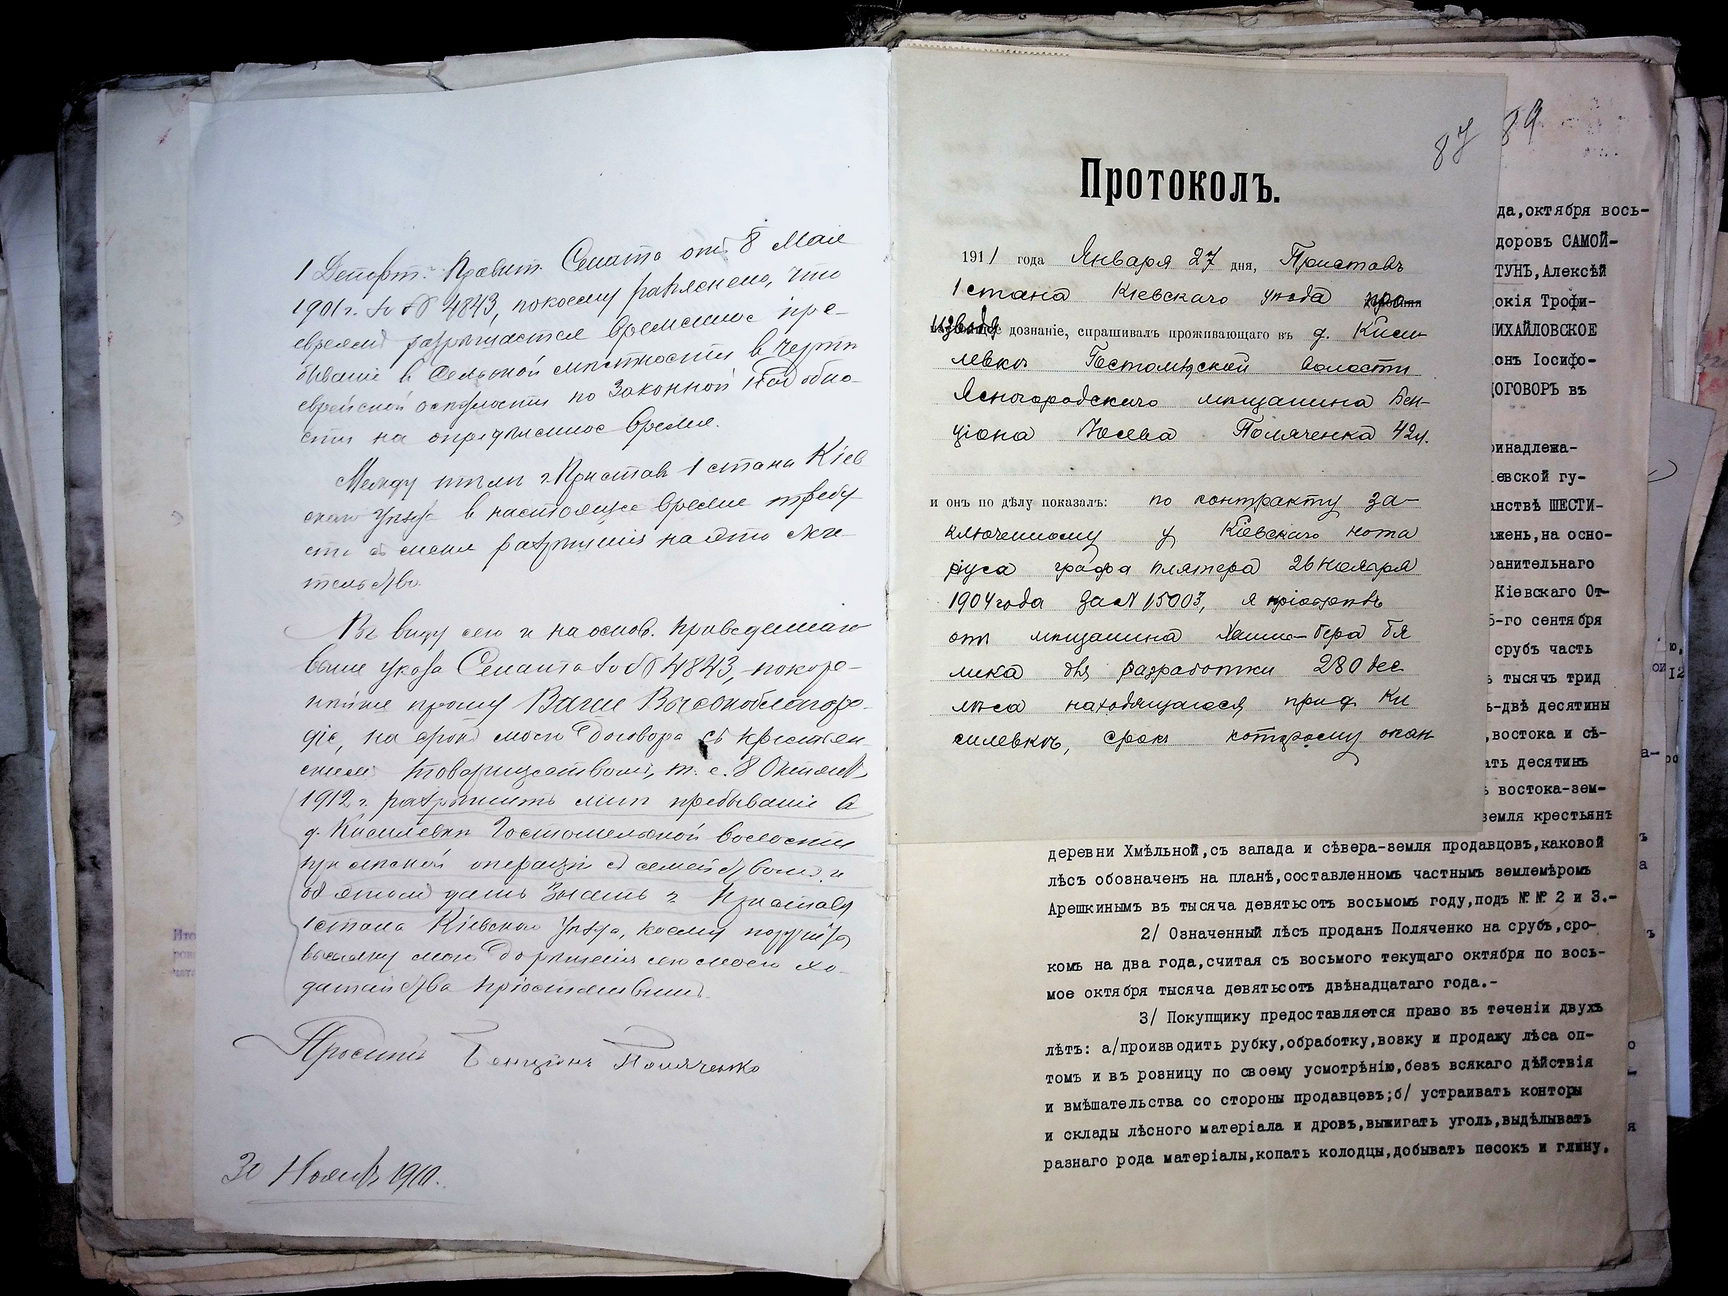 1 Департ. Правит. Сената отъ 8 Мая
1901 г. за № 4843, по коему разъяснено, что
евреямъ разрѣшается временное пре-
бываніе в Сельской мѣстности в чертѣ
еврейской осѣдлости по Законной надобно-
сти на опредѣленное время.
Между тѣмъ г. Приставъ 1 стана Кіев
скаго Уѣзда в настоящее время требу
етъ съ меня разрѣшенія на это жи-
тельство
Въ виду сего и на основ. приведеннаго
выше указа Сената за № 4843, покор-
нѣйше прошу Ваше Высокоблагоро-
діе, на срокъ моего Договора съ крестьян-
скимъ товариществомъ, т. е. 8 Октября
1912 г. разрѣшить мнѣ пребываніе в
д. Кисилевкѣ Гостомельской волости
при лѣсной операціи съ семействомъ и
об этомъ дать знать г. Приставу
1 стана Кіевскаго Уѣзда, коему поручить
высылку мою до рѣшенія сего моего хо-
датайства пріостановить.
Проситель Бенціонъ Поляченко
30 Ноября 1910 г.
87
89
Протоколъ.
191 1 года Января 27 дня, Приставъ
1 стана Кіевскаго уѣзда про
изводя дознаніе, спрашивалъ проживающаго въ д. Киси
левкѣ Гостомѣской волости
Ясногородскаго мѣщанина Бен-
ціона Іосева Поляченка 42 л.
и онъ по дѣлу показалъ: по контракту за-
ключенному у Кіевскаго нота
ріуса графа Плятера 26 Ноября
1904 года за № 15003, я пріобрѣлъ
отъ мѣщанина Хаима-Бера Бя
лика для разработки 280 дес
лѣса находящагося при д. Ки
силевкѣ, срокъ которому окон
да,октября вось-
доровъ САМОЙ-
ТУНЪ,Алексѣй
окія Трофи-
ИХАЙЛОВСКОЕ
онъ Іосифо-
ДОГОВОРЪ въ
ринадлежа-
іевской гу-
анствѣ ШЕСТИ-
ажень,на осно-
ранительнаго
Кіевскаго От-
5-го сентября
срубъ часть
ь тысячъ трид
ь-двѣ десятины
,востока и сѣ-
ать десятинъ
ъ востока-зем-
земля крестьянъ
деревни Хмѣльной,съ запада и сѣвера-земля продавцовъ,каковой
лѣсъ обозначенъ на планѣ,составленномъ частнымъ землемѣромъ
Арешкинымъ въ тысяча девятьсотъ восьмомъ году,подъ №№ 2 и 3.-
2/ Означенный лѣсъ проданъ Поляченко на срубъ,сро-
комъ на два года,считая съ восьмого текущаго октября по вось-
мое октября тысяча девятьсотъ двѣнадцатаго года.-
3/ Покупщику предоставляется право въ теченіи двухъ
лѣтъ: а/производить рубку,обработку,возку и продажу лѣса оп-
томъ и въ розницу по своему усмотрѣнію,безъ всякаго дѣйствія
и вмѣшательства со стороны продавцевъ;б/ устраивать конторы
и склады лѣсного матеріала и дровъ,выжигать уголь,выдѣлывать
разнаго рода матеріалы,копать колодцы,добывать песокъ и глину,